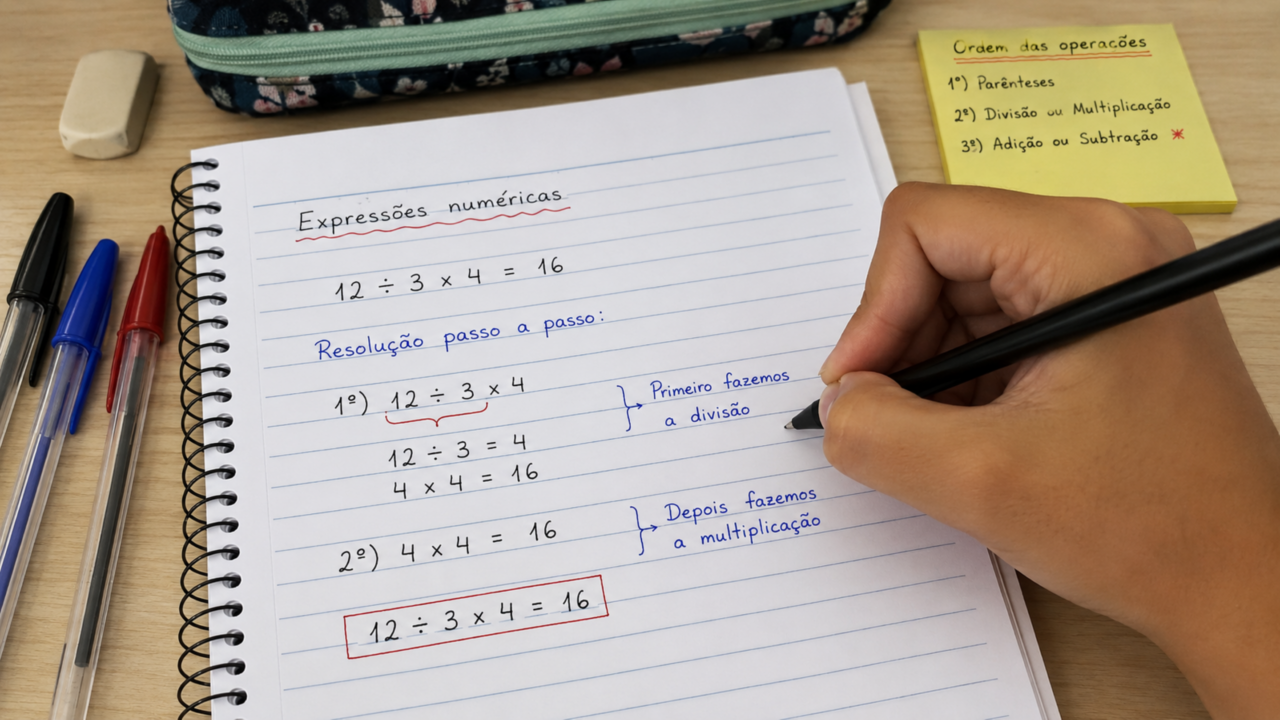 Expressões numéricas
12 ÷ 3 x 4 = 16
Resolução passo a passo:
1º) 12 ÷ 3 x 4
Primeiro fazemos
a divisão
12 ÷ 3 = 4
4 x 4 = 16
2º) 4 x 4 = 16
Depois fazemos
a multiplicação
12 ÷ 3 x 4 = 16
Ordem das operacões
1º) Parênteses
2º) Divisão ou Multiplicação
3º) Adição ou Subtração *